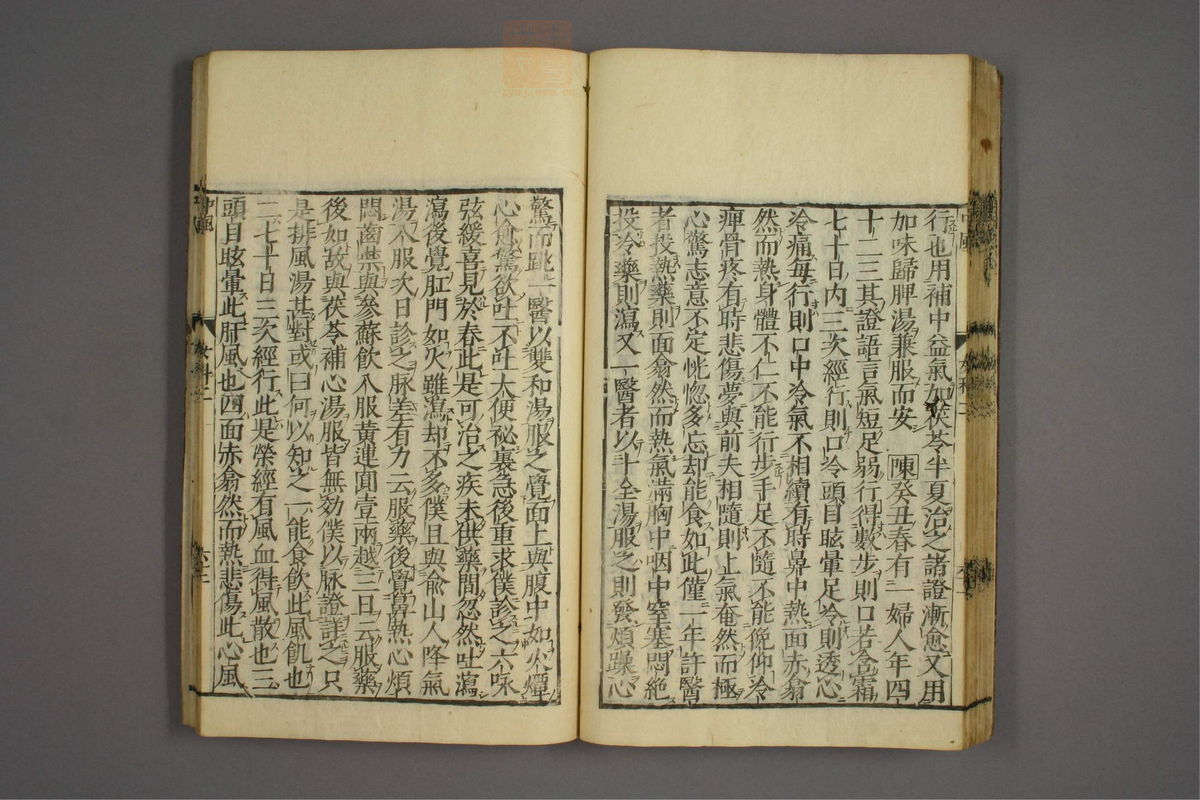 行也用補中益氣加茯苓半夏治之諸證漸愈又用
加味歸脾湯兼服而安 陳癸丑春有一婦人年四
十二三其證語言氣短足弱行得數步則口若含霜
七十日內三次經行則口冷頭目眩暈足冷則透心
冷痛每行則口中冷氣不相續有時鼻中熱面赤翕
然而熱身體不仁不能行步手足不隨不能俛仰冷
痺骨疼有時悲傷夢與前夫相隨則上氣奄然而極
心驚志意不定恍惚多忘却能食如此僅一年許醫
者投熱藥則面翕然而熱氣滿胸中咽中窒塞悶絕
投冷藥則瀉又一醫者以十全湯服之則發煩躁心
驚而跳一醫以雙和湯服之覺面上與腹中如火燀
心愈驚欲吐不吐大便祕裏急後重求僕診之六脉
弦緩喜見於春此是可治之疾未供藥間忽然吐瀉
瀉後覺肛門如火雖瀉却不多僕且與俞山人降氣
湯八服次日診之脉差有力云服藥後覺鼻熱心煩
悶齒噤與參蘇飲八服黃連圓壹兩越三日云服藥
後如故與茯苓補心湯服皆無効僕以脉證詳之只
是排風湯甚對或曰何以知之一能食飲此風飢也
二七十日三次經行此是榮經有風血得風散也三
頭目眩暈此肝風也四面赤翕然而熱悲傷此心風
中風
女科